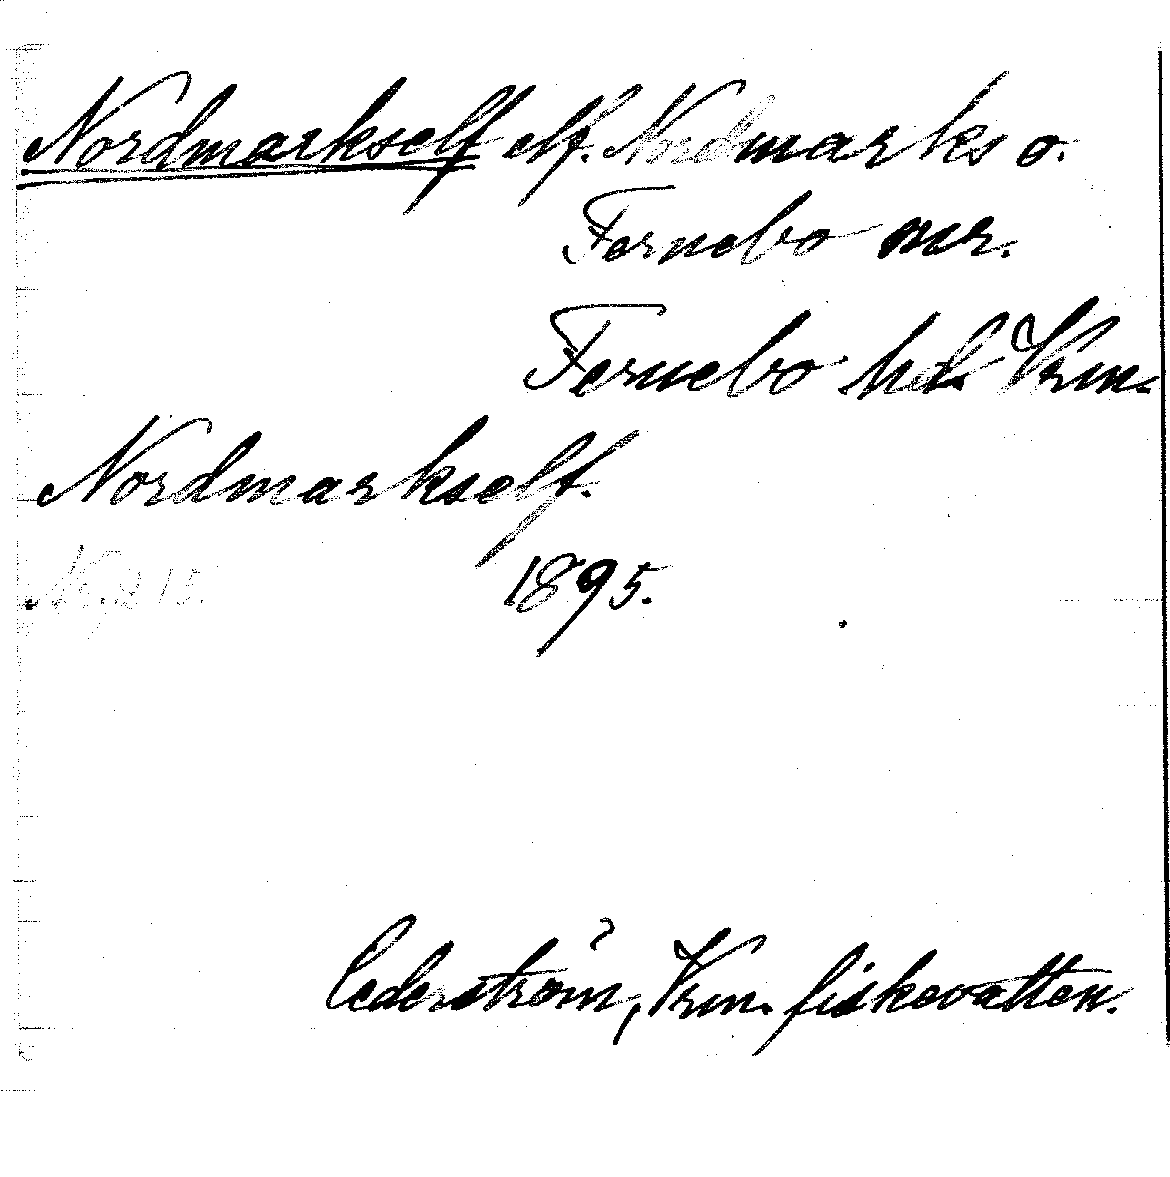 Nordmarkself elf. Nordmarks o.
Fernebo snr.
Fernebo hd Vrm.
Nordmarkself.
1895.
Cederström, Vrm. fiskevatten.